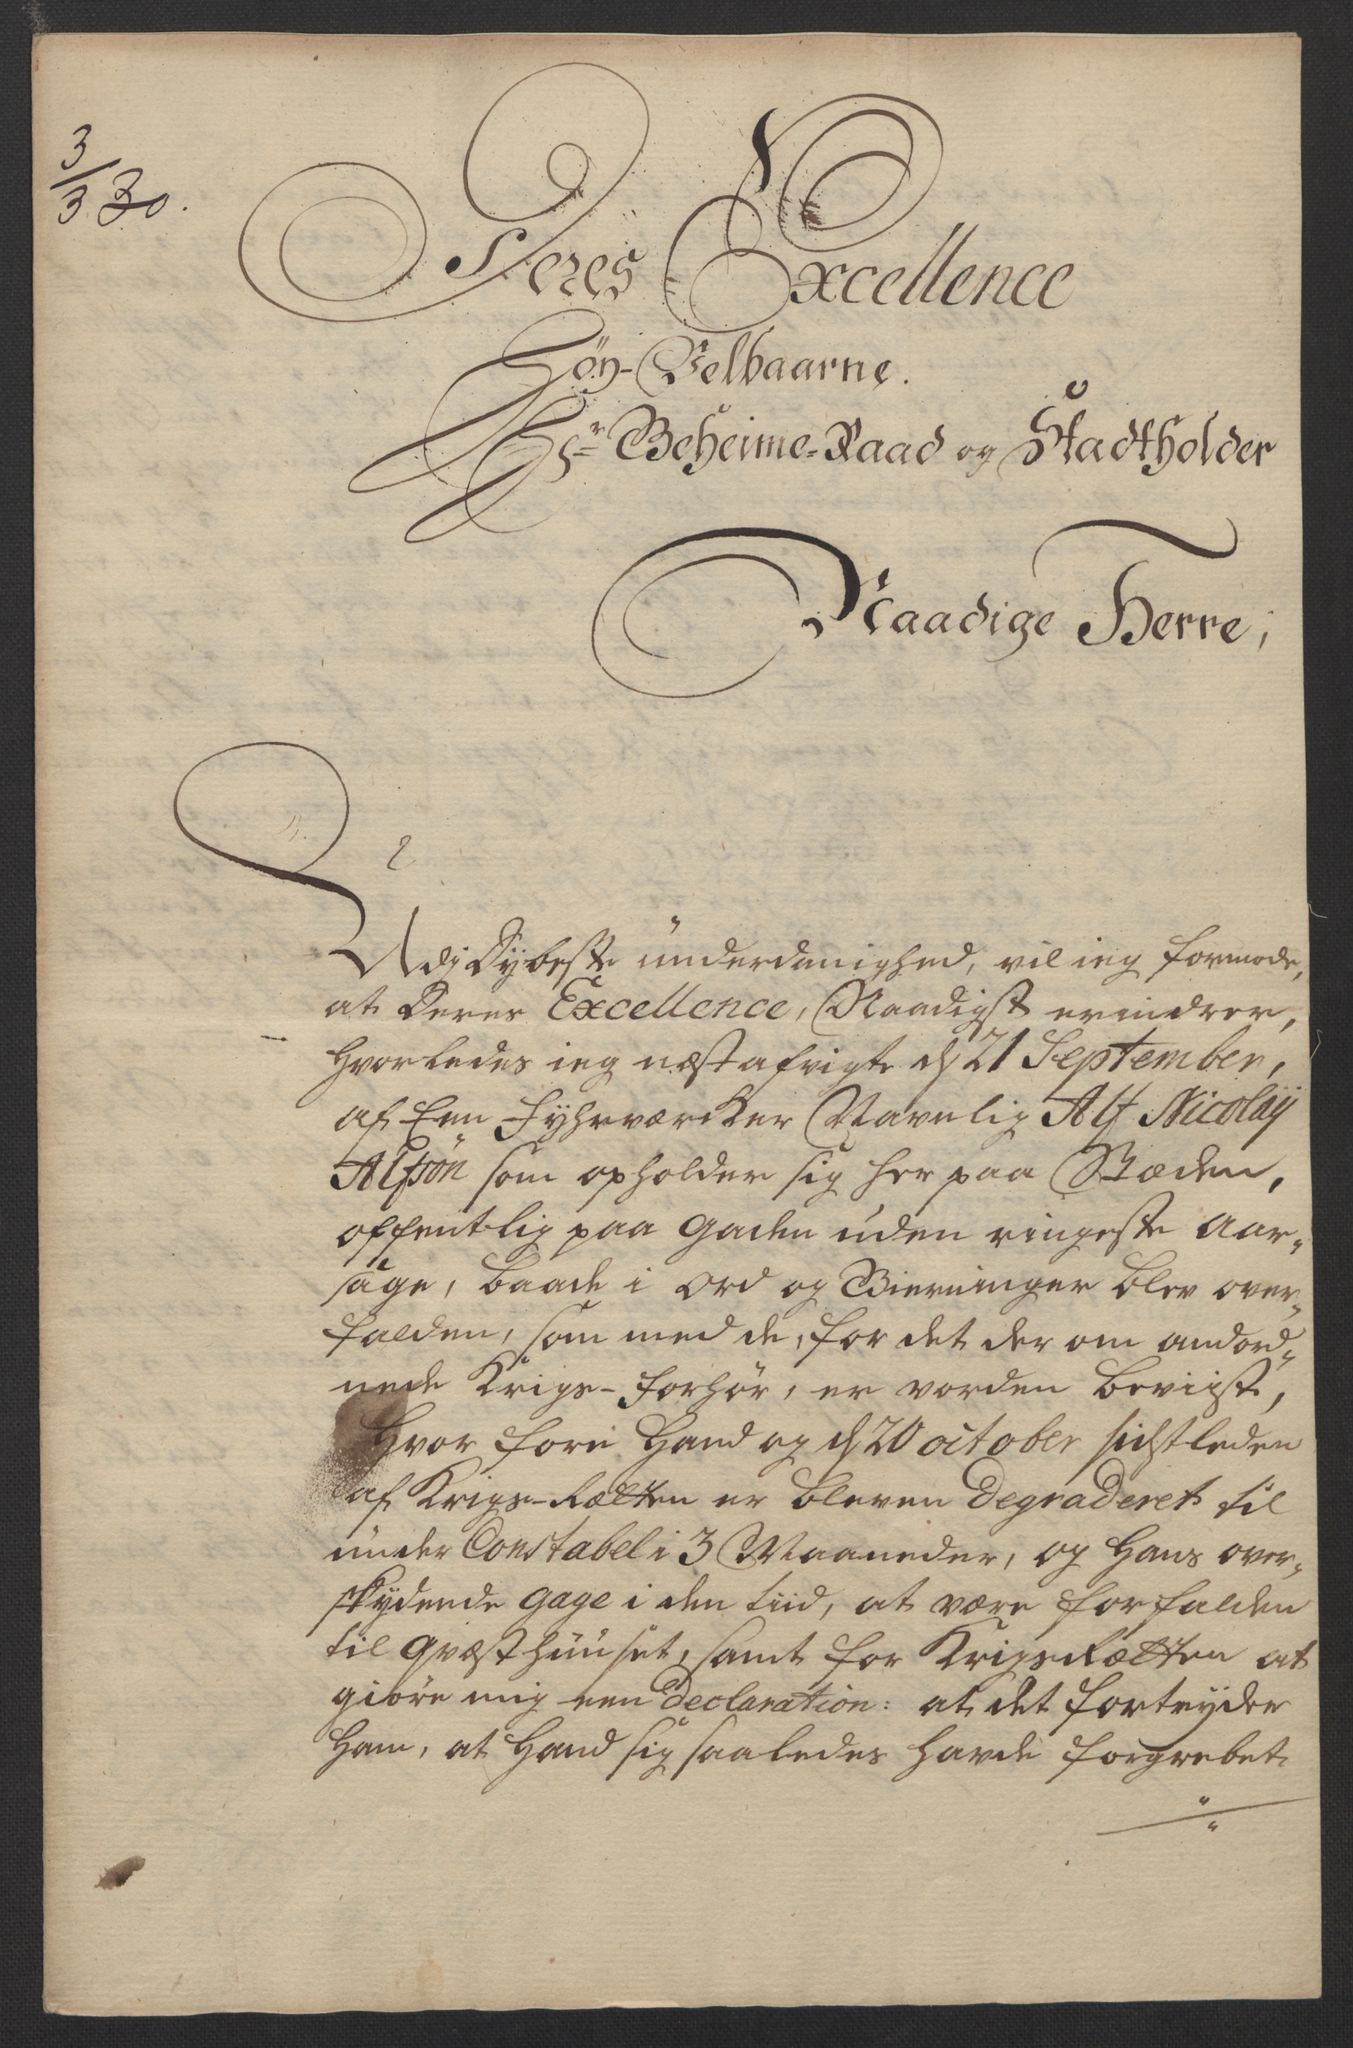 3/3 30.
Deres Excellence
Høy-Velbaarne.
Hr Geheime-Raad og Stadtholder
Naadige Herre;
Udj Dybeste ünderdanighed, vil ieg formode,
at Deres Excellence, Naadigst erindrer,
hvorledes ieg næstafvigte d 21 September,
af Een Fyhrværcker Navnlig Alf Nicolaÿ
Alfsön som opholder sig her paa Stæden,
offentlig paa gaden uden ringeste Aar-
sage, baade i Ord og Gierninger blev over-
falden, som med de, for det der om anord-
nede Krigs-Forhör, er vorden beviist,
Hvor fore Hand og d 20 october sidstleden
af Krigs-Rætten er bleven Degraderet til
under Constabel i 3 Maaneder, og Hans over-
skydende gage i den tiid, at være forfalden
til qvæsthuuset, samt for KrigsRætten at
giöre mig een Declaration: at det fortryder
Ham, at Hand sig saaledes havde forgrebet